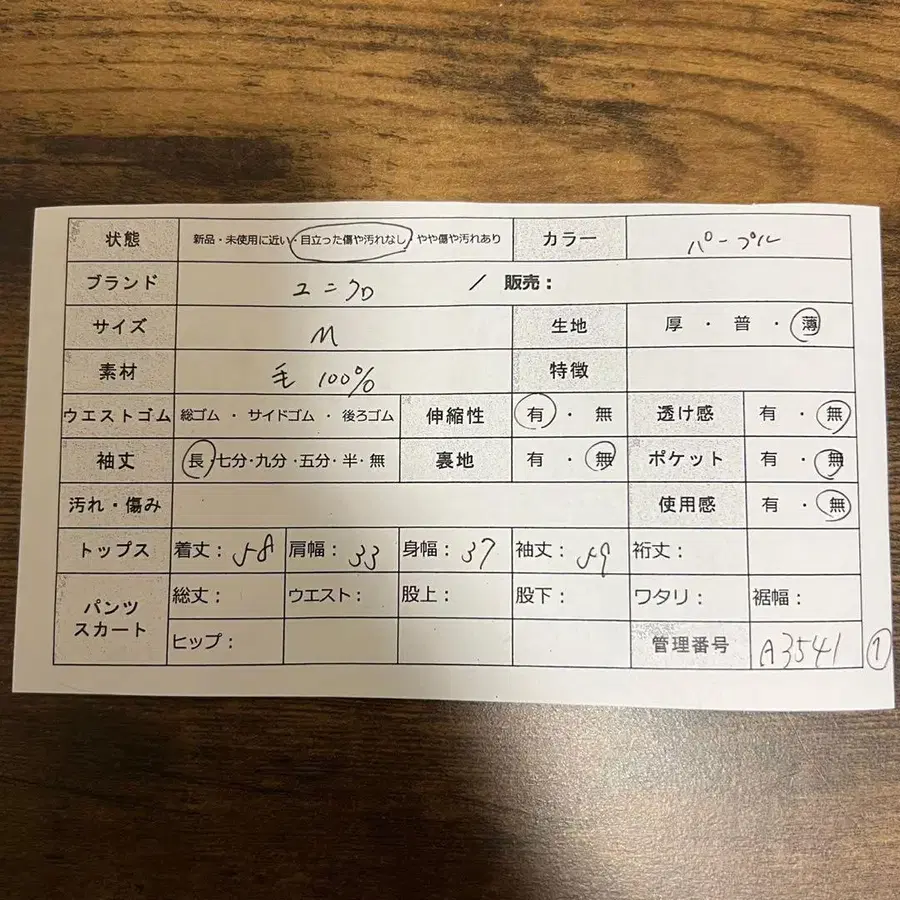 状態 新品・未使用に近い・目立った傷や汚れなし・やや傷や汚れあり カラー パープル
ブランド ユニクロ / 販売：
サイズ M 生地 厚 ・ 普 ・ 薄
素材 毛 100% 特徴
ウエストゴム 総ゴム ・ サイドゴム ・ 後ろゴム 伸縮性 有 ・ 無 透け感 有 ・ 無
袖丈 長・七分・九分・五分・半・無 裏地 有 ・ 無 ポケット 有 ・ 無
汚れ・傷み 使用感 有 ・ 無
トップス 着丈：58 肩幅：33 身幅：37 袖丈：59 裄丈：
パンツ スカート 総丈： ウエスト： 股上： 股下： ワタリ： 裾幅：
ヒップ： 管理番号 A3541 ①